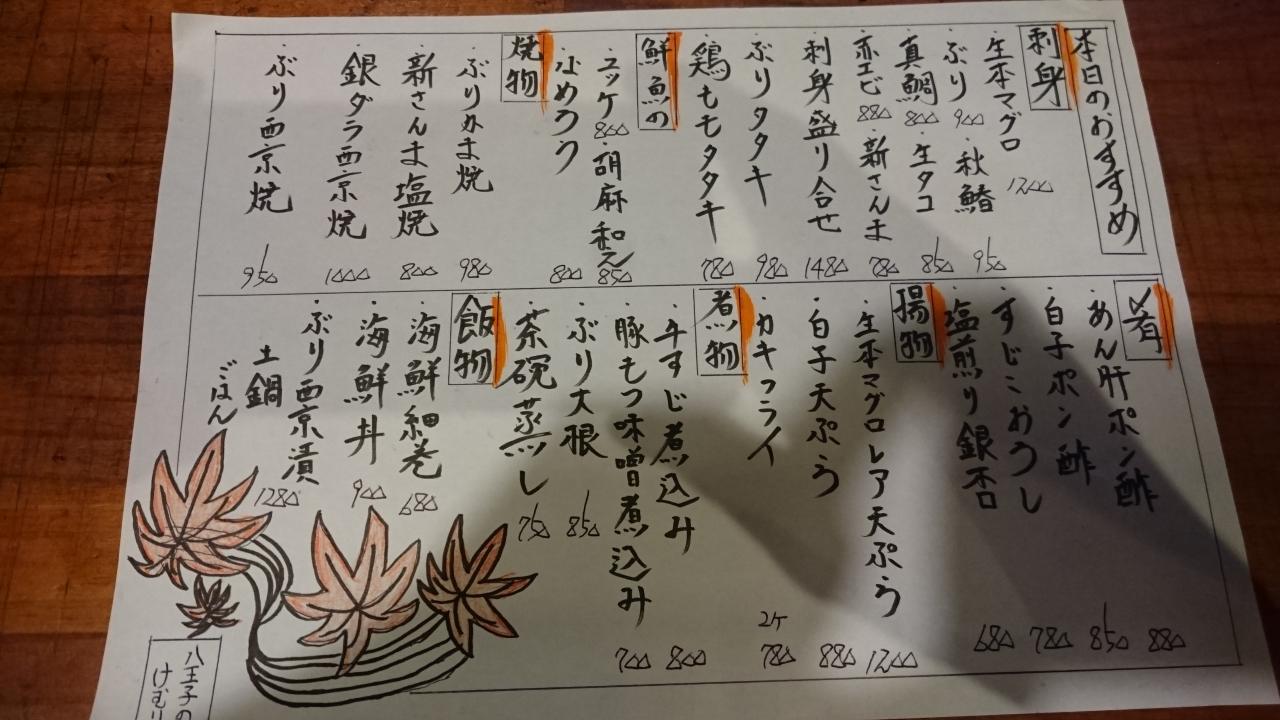 本日のおすすめ
刺身
・生本マグロ 1200
・ぶり 900 ・秋鰆 950
・真鯛 800 ・生タコ 850
・赤エビ 880 ・新さんま 780
・刺身盛り合せ 1480
・ぶりタタキ 980
・鶏ももタタキ 780
鮮魚の
・ユッケ 800 ・胡麻和え 850
・なめろう 800
焼物
・ぶりかま焼 980
・新さんま塩焼 800
・銀ダラ西京焼 1000
・ぶり西京焼 950
肴
・あん肝ポン酢 880
・白子ポン酢 850
・すじこおろし 780
・塩煎り銀杏 680
揚物
・生本マグロレア天ぷら 1200
・白子天ぷら 880
・カキフライ 2ケ 780
煮物
・牛すじ煮込み 800
・豚もつ味噌煮込み 700
・ぶり大根 850
・茶碗蒸し 750
飯物
・海鮮細巻 680
・海鮮丼 900
・ぶり西京漬
土鍋 1280
ごはん
八王子の
けむり